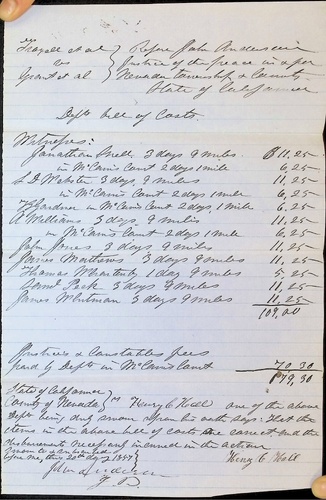 Before John Anderson
vs Justice of the peace in & for
Grant et al Nevada township & County
State of California
Defts bill of Costs
Witnesses:
Jonathan Snell 3 days 9 miles $11,25
in McCains Court 2 days 1 mile 6,25
S D Webster 3 days, 9 miles 11,25
in McCains Court 2 days 1 mile 6,25
Gardner in McCains Court 2 days 1 mile 6,25
A Williams 3 days, 9 miles 11,25
in McCains Court 2 days 1 mile 6,25
John Jones 3 days 9 miles 11,25
James Matthews 3 days 9 miles 11,25
Thomas 1 day 9 miles 5,25
Saml Peck 3 days 9 miles 11,25
James Whitman 3 days 9 miles 11,25
109,00
Justices & Constables fees
paid by Defts in McCains Court 70,30
$179,30
State of California
County of Nevada ss Henry C Hall one of the above
Defts being duly sworn upon his oath says: that the
items in the above bill of costs are correct and the
disbursements necessarily incurred in the action
Sworn to & subscribed
before me, this 20th day of 1857 Henry C Hall
John Anderson
J. P.